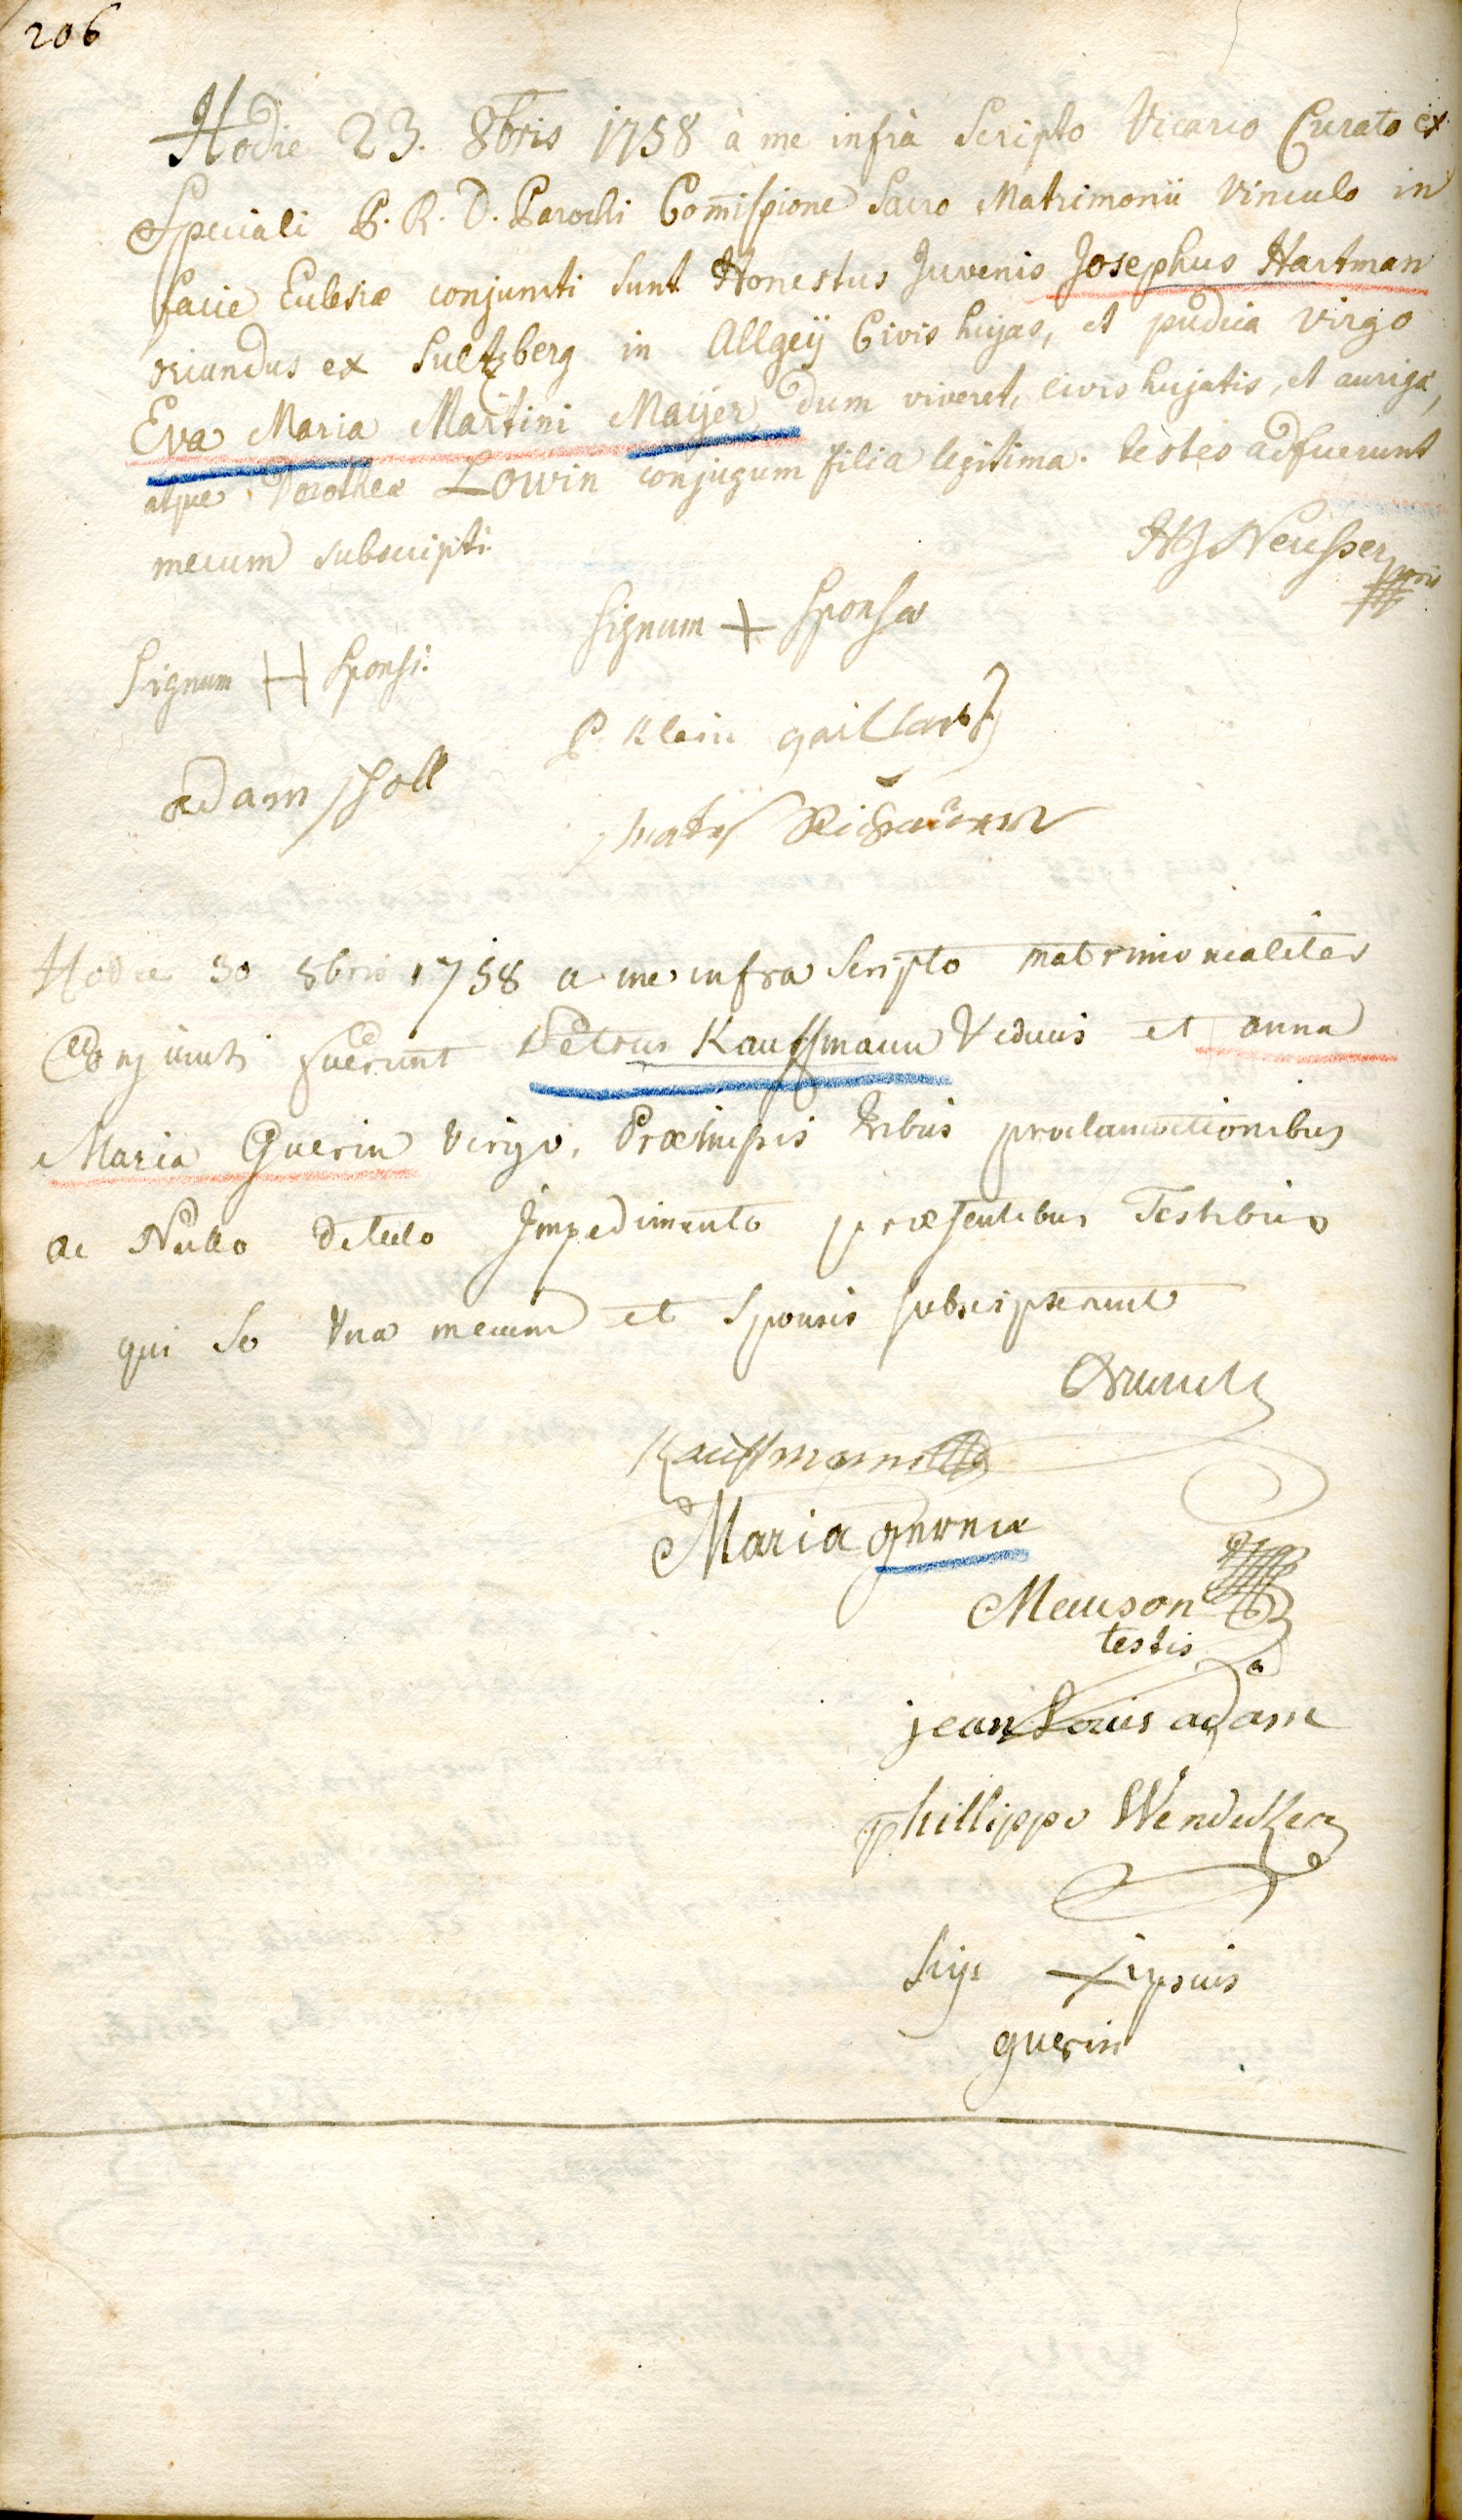 206
Hodie 23. 8bris 1758 à me infrà Scripto Vicario Curato ex
Speciali P. R. D. Parochi Com̄issione Sacro Matrimonii Vinculo in
facie Eclesiæ conjuncti Sunt Honestus Juvenis Josephus Hartman
oriundus ex Sultzberg in Allgeÿ Civis hujas, et pudica virgo
Eva Maria Martini Maÿer dum viveret, civis hujatis, et aurigæ,
atque Dorotheæ Lowin conjugum filia legitima. testes adfuerunt
mecum subscripti.
Neusser
Signum + Sponsæ
Signum H Sponsi.
P. Klein gaillard
adam scholl
Hodie 30 8bris 1758 a me infra Scripto matrimonialiter
Conjuncti fuerunt Petrus Kauffmann Viduus et anna
Maria Guerin Virgo, Præmissis tribus proclamationibus
ac Nullo detecto Impedimento præsentibus Testibus
qui se Una mecum et Sponsis subscripserunt
Kauffmann
Maria
Meuson
testis
jean Louis adam
phillippe
Sig: + ipsius
guerin